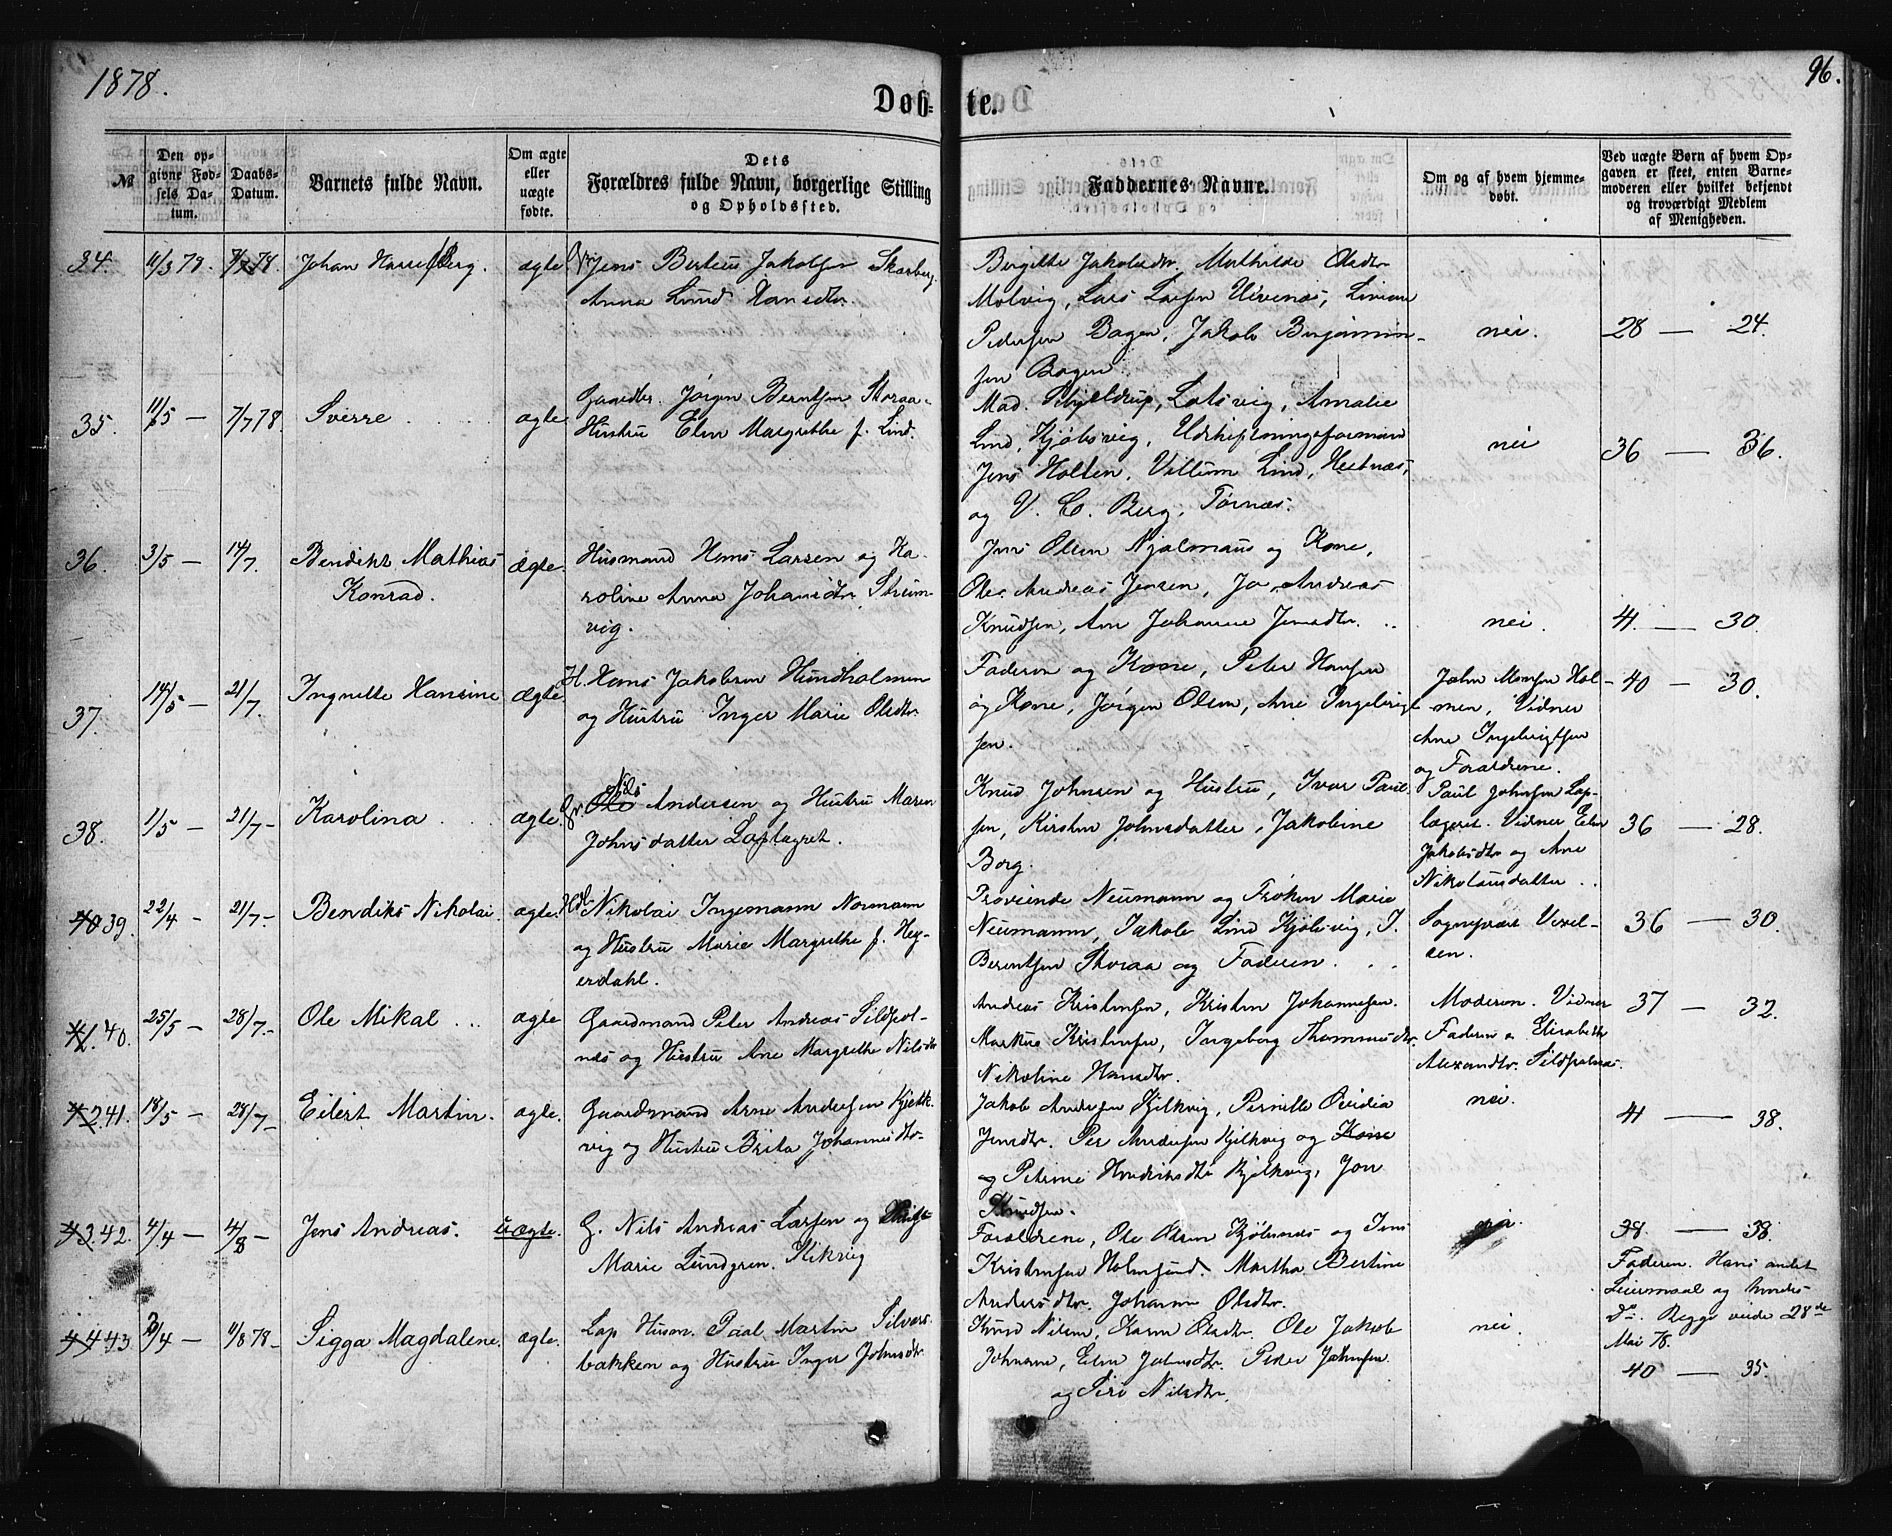 1878.
Døb-
te.
96.
№
Den op-
givne Fød-
sels Da-
tum.
Daabs-
Datum.
Barnets fulde Navn.
Om ægte
eller
uægte
fødte.
Dets
Forældres fulde Navn, borgerlige Stilling
og Opholdssted.
Faddernes Navne.
Om og af hvem hjemme-
døbt.
Ved uægte Børn af hvem Op-
gaven er skeet, enten Barne-
moderen eller hvilket bekjendt
og troværdigt Medlem
af Menigheden.
34. 11/3 78. 7/7 78. Johan Berg. ægte Jens Berteus Jakobsen Skarberg. Birgitte Jakobsdtr. Mathilde Olsdtr
Anna Lund Hansdtr. Molvig, Lars Larsen
Pedersen Bogen, Jakob Benjamin- nei. 28 — 24.
sen Bogen.
35. 11/5 — 7/7 78. Sverre ægte Gaardbr. Jørgen Berntsen Storaa. Mad. Schjeldrup, Lotsvig, Amalie
Hustru Elen Margrethe f. Lind. Lind, Kjöbsvig, Udskiftningsformand nei 36 — 36.
Jens Holten, Villum Lind,
og V. C. Berg, Tørnæs.
36. 3/5 — 14/7. Bendikt Mathias ægte. Husmand Hans Larsen og Ka- Jens Olsen Njalmaus og Kone,
Konrad. roline Anna Johansdtr. Strøm- Ole Andreas Jensen, Jo Andreas
vig. Knudsen, Ane Johanne Jensdtr. nei. 41. — 30.
37. 14/5 — 21/7. Ingnette Hansine ægte. H. Hans Jakobsen Hundholmen Faderen og Kone, Peter Hansen John Monsen Hol- 40 — 30.
og Hustru Inger Marie Olsdtr. og Kone, Jørgen Olsen, Arne Ingebrigt- men, Vidner
sen. Arne Ingebrigtsen
og Forældrene.
38. 1/5 — 21/7 — Karolina ægte Nils Andersen og Hustru Maren Knud Johnsen og Hustru, Ivar Paul- Paul Johnsen Lap-
Johnsdatter Laplægret. sen, Kirsten Johnsdatter, Jakobine lægret. Vidner Elen 36 — 28.
Borg. Jakobsdtr og Ane
Nikolausdatter
39. 22/4 — 21/7 — Bendiks Nikolai. ægte. Nikolai Ingemann Normann Provsinde Neumann og Frøken Marie
og Hustru Marie Margrethe f. Hey- Neumann, Jakob Lind Kjöbsvig, J. Sognepræst Vexel- 36 — 30.
erdahl. Berentsen Storaa og Faderen. sen.
40. 25/5 — 28/7 — Ole Mikal ægte Gaardmand Peter Andreas Sildpol- Andreas Kristensen, Kristen Johannesen. Moderen. Vidner 37 — 32.
næs og Hustru Ane Margrethe Nilsdtr Markus Kristensen, Ingeborg Thommesdtr. Faderen o Elisabeth
Nikoline Hansdtr. Alexandtr. Sildpolnæs.
41. 18/5 — 28/7 — Eilert Martin. ægte. Gaardmand Arne Andersen Kjelk- Jakob Andersen Kjelkvig, Pernille Ovidia nei. 41 — 38.
vig og Hustru Brita Johannesdtr. Jensdtr. Per Andersen Kjelkvig og Kone
og Petrine Hendriksdtr Kjelkvig, Jon
Knudsen.
42. 4/4 — 4/8 — Jens Andreas. uægte. G. Nils Andreas Larsen og Forældrene, Ole Olsen Kjöbsnæs og Jens nei. 38 — 38.
Marie Lundgren. Kikvig Kristensen Holmsund. Martha Bertine Faderen. Hans andet
Andersdtr. Johanne Olsdtr. Leiermaal og hendes
Do. Begge viede 28de
Mai 78.
43. 3/4 — 11/8 78 — Sigga Magdalene. ægte. Lap Husm. Paal Martin Silvers- Knud Nilsen, Karen Olsdtr. Ole Jakob nei.
bakken og Hustru Inger Johnsdtr. Johnsen, Elen Johnsdtr. Peder Johnsen 40 — 35.
og Siri Nilsdtr.